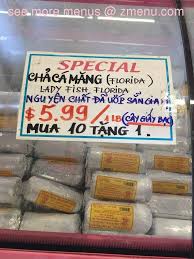 see more menus @ zmenu.com
SPECIAL
CHẢ CÁ MĂNG (FLORIDA)
LADY FISH, FLORIDA
NGUYÊN CHẤT ĐÃ ƯỚP SẴN GIA VỊ
$5.99/1LB (CÂY GIẤY BẠC)
MUA 10 TẶNG 1.